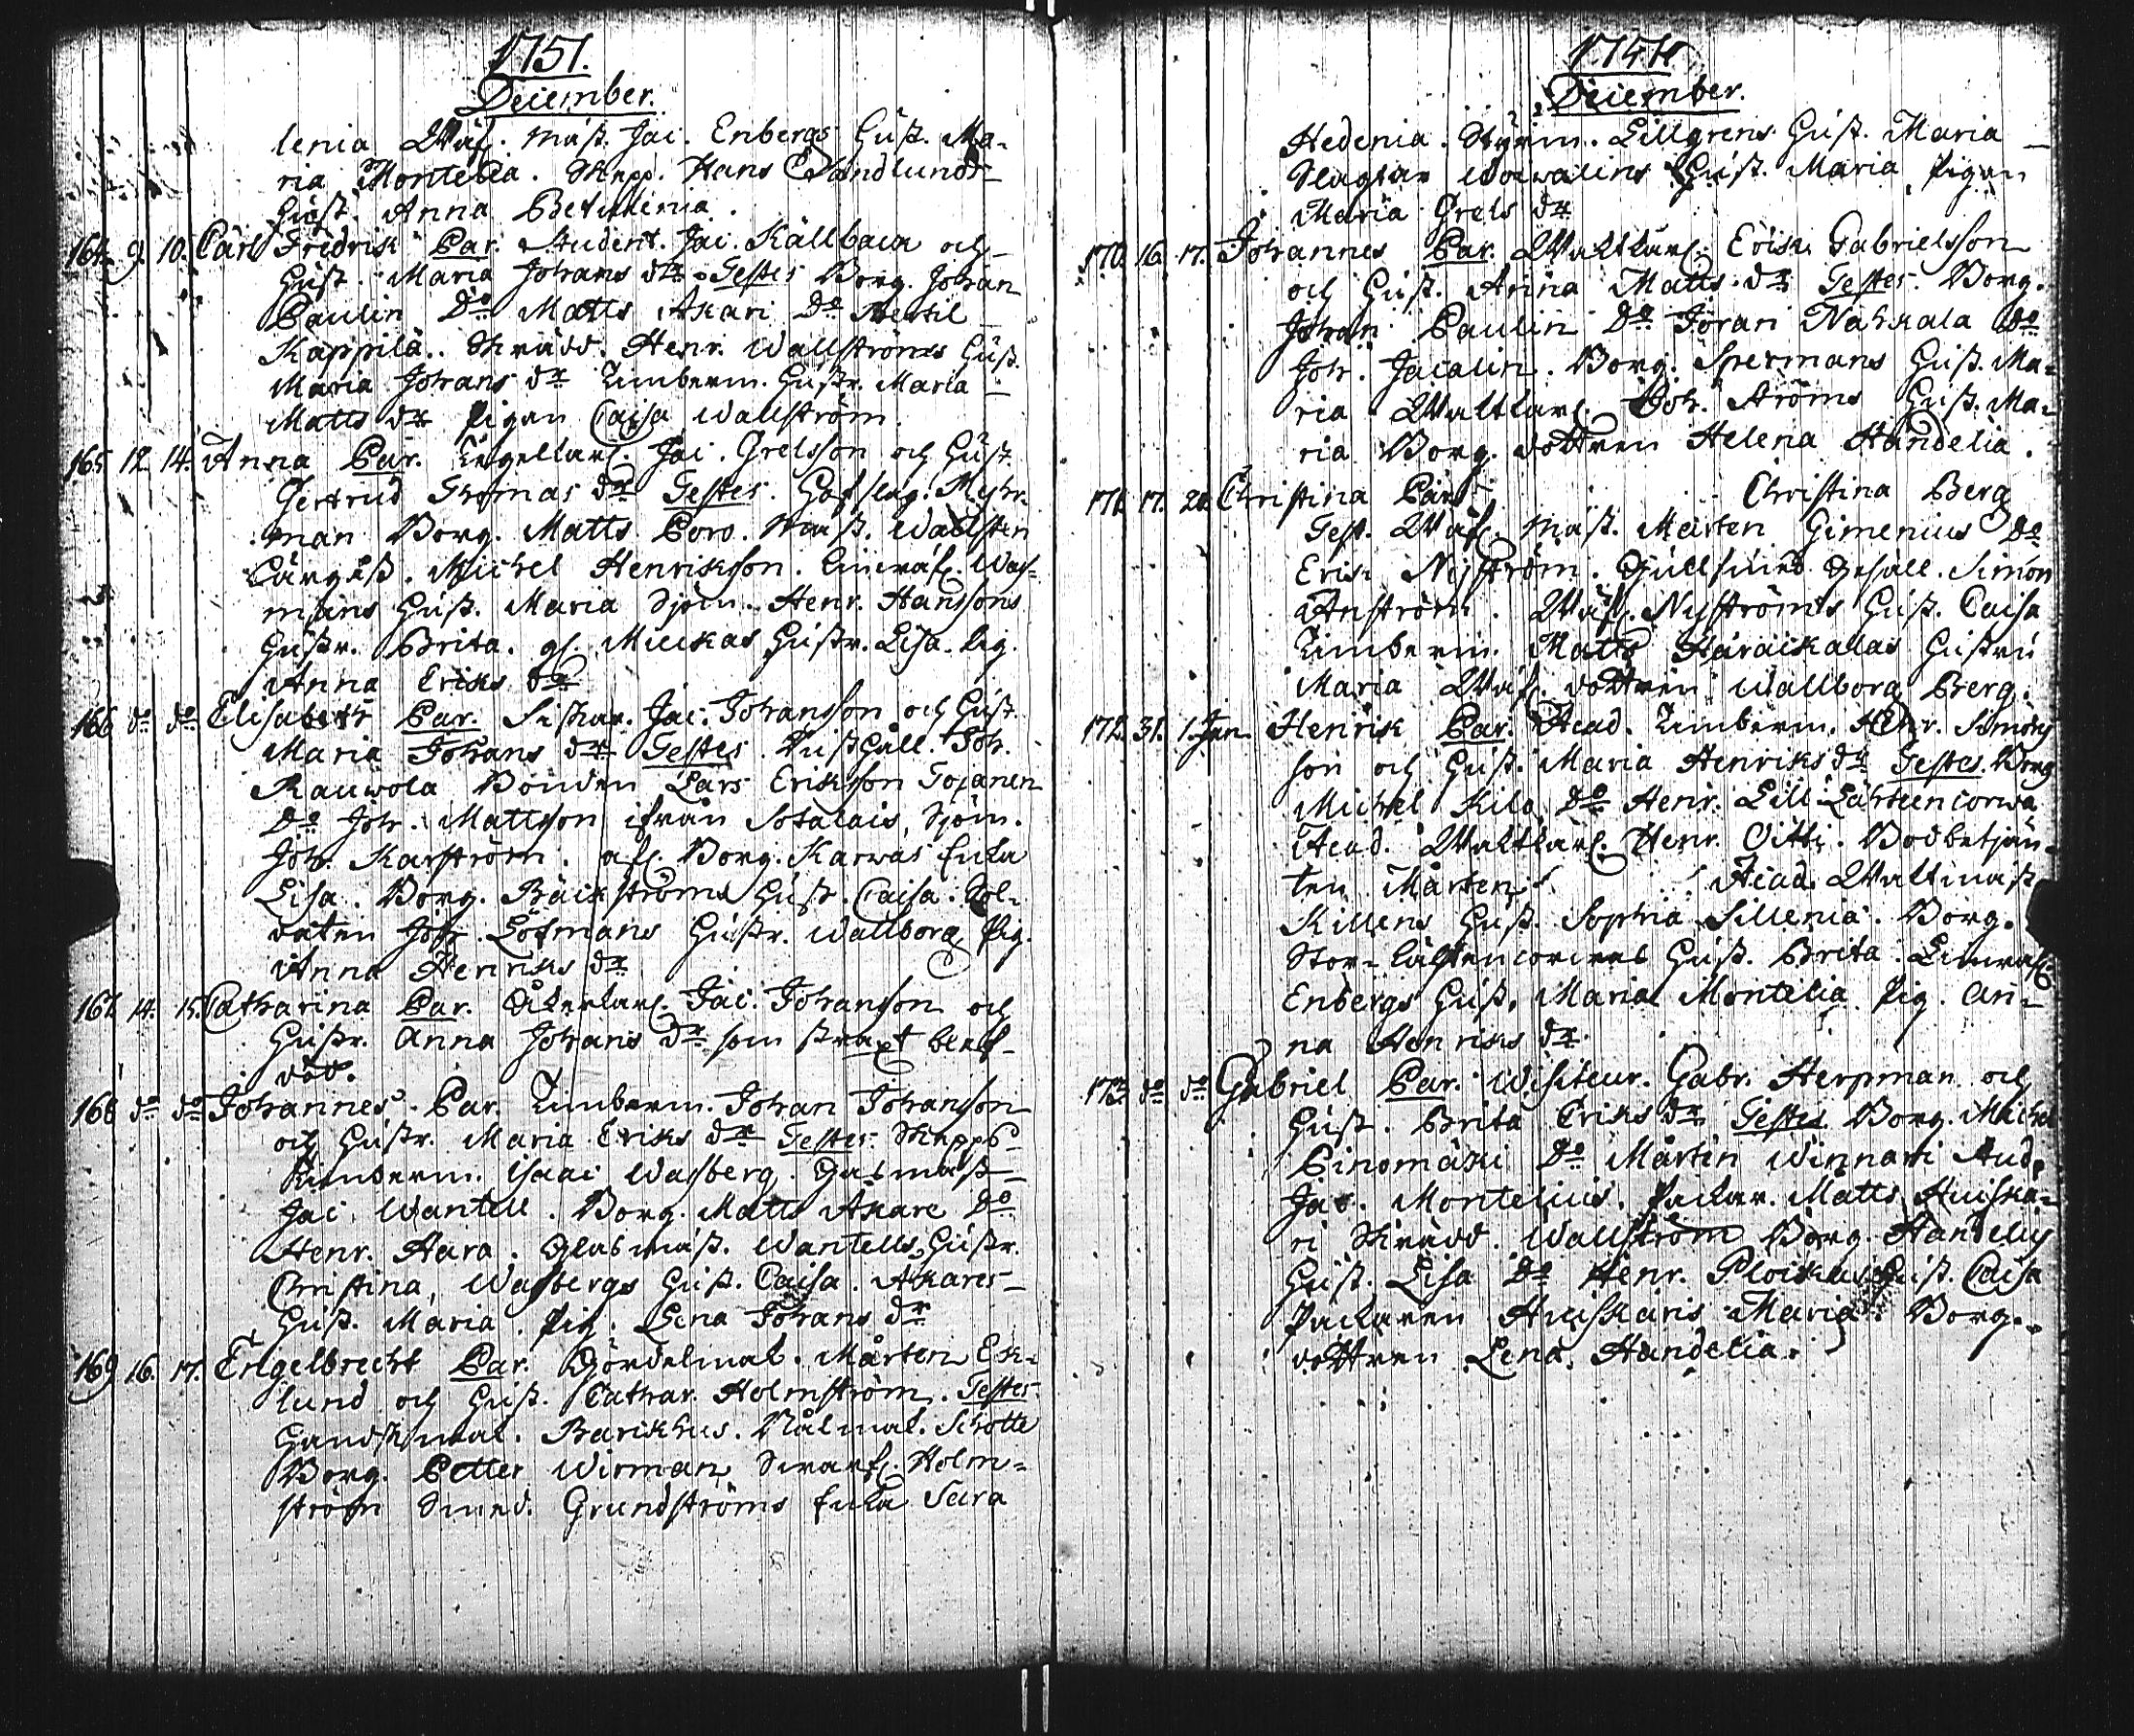 1751.
December.
lenia Wäf. mäst. Jac. Enbergs Hust. Ma-
ria Montelia. Skepp. Hans Sandlunds
Hust. Anna Bethlenia.
164. 9. 10. Carl Fredrik Par. Student. Jac. Källbäck och
Hust. Maria Johans dr. Testes Borg. Johan
Paulin Do Matts Akari Do Bertil
Kappilä. Skrädd. Henr. Wallströms Hust.
Maria Johans dr Timberm. Hustr. Maria
Matts dr Pigan Caisa Wallström
165 12. 14. Anna Par. Tegelkarl. Jac. Grelsson och Hust.
Gertrud Thomas dr Testes. Myhr-
man Borg. Matts Wallsten
Michel Henriksson.
Hust. Maria Sjöm. Henr. Hanssons
Hustr. Brita. Hustr. Lisa. Pig.
Anna Eriks dr
166 do do Elisabeth Par. Jac. Johansson och Hust.
Maria Johans dr Testes Joh.
Rauwola Bonden Lars Eriksson Tojanen
Do Joh. Mattsson ifrån Sotalais, Sjöm.
Joh. Karström. afl. Borg. Karwas Enka
Lisa. Borg. Bäckströms Hust. Caisa. Sol-
daten Joh. Löfmans Hustr. Wallborg, Pig.
Anna Henriks dr
167 14. 15. Catharina Par. Åkerkarl. Jac. Johansson och
Hustr. Anna Johans dr som straxt blef
död.
168 do do Johannes. Par. Timberm. Johan Johansson
och Hustr. Maria Eriks dr Testes. Skepps
Timberm. Isaac Wasberg. Glasmäst.
Jac. Wantell. Borg. Matts Akare Do
Henr. Hara. Glasmäst. Wantells Hustr.
Christina, Wasbergs Hust. Caisa. Akares
Hust. Maria. Pig. Lena Johans dr
169 16. 17. Engelbrecht Par. Gördelmak. Mårten Ek-
lund och Hust. Cathar. Holmström. Testes
Handskmak. Barckhus. Nålmak. Schotte
Borg. Petter Wirman Swarf. Holm-
ström Smed. Grundströms Enka Sara
December.
Hedenia. Styrm. Lillgrens Hust. Maria
Slagtar Hust. Maria Pigan
Maria Grels dr
170. 16. 17. Johannes Par. Waktkarl. Erik Gabrielsson
och Hust. Anna Matts dr Testes. Borg.
Johan Paulin Do Jöran Nahkala Do
Joh. Jacalin. Borg. Spermans Hust. Ma-
ria Waktkarl. Joh. Ströms Hust. Ma-
ria Borg. dottren Helena Handelia.
171. 17. 20. Christina Par Christina Berg
Test. Wäf. mäst. Mårten Gimenius Do
Erik Nyström. Gullsmed Gesäll. Simon
Anström. Wäf. Nyströms Hust. Caisa
Timberm. Matts Haraickalas Hustru
Maria Wäf. dottren Wallborg Berg.
172. 31. 1. Jan. Henrik Par. Acad. Timberm. Henr. Simons
son och Hust. Maria Henriks dr Testes Borg
Michel Kilo Do Henr. Lill Lähteencorwa
Acad. Waktkarl. Henr. Oitti. Bodbetjän-
ten Mårten Acad. Waktmäst.
Killens Hust. Sophia Sillenia. Borg.
Stor- Hust. Brita.
Enbergs Hust. Maria Montelia Pig. An-
na Henriks dr
173. do do Gabriel Par. Wisiteur. Gabr. Herpman och
Hust. Brita Eriks dr Testes Borg. Michel
Pinomäki Do Mårtin Winnari Stud.
Jac. Montelius. Packar. Matts Huiska-
ri Skrädd. Wallström Borg. Handelii
Hust. Lisa Do Henr. Hust. Caisa
Packaren Huiskaris Maria. Borg.
dottren Lena Handelia.